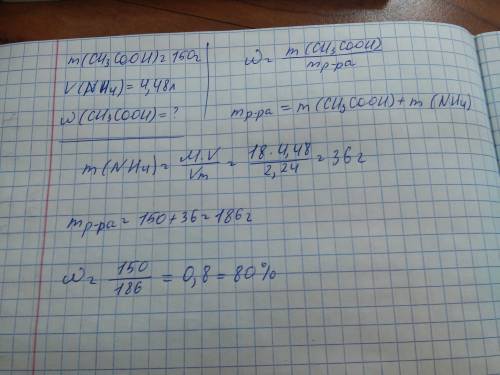 m(CH₃COOH) = 150г
V(NH₄) = 4,48л
ω(CH₃COOH) = ?
ω = m(CH₃COOH) / mр-ра
mр-ра = m(CH₃COOH) + m(NH₄)
m(NH₄) = M·V / Vm = 18·4,48 / 2,24 = 36г
mр-ра = 150 + 36 = 186г
ω = 150 / 186 = 0,8 = 80%